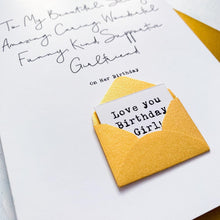 To My Beautiful
Amazing Caring Wonderful
Funny Kind Supportive
Girlfriend
On Her Birthday
Love you
Birthday
Girl!